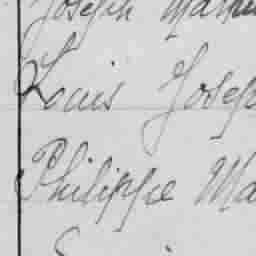 Joseph
Louis Josep
Philippe Ma